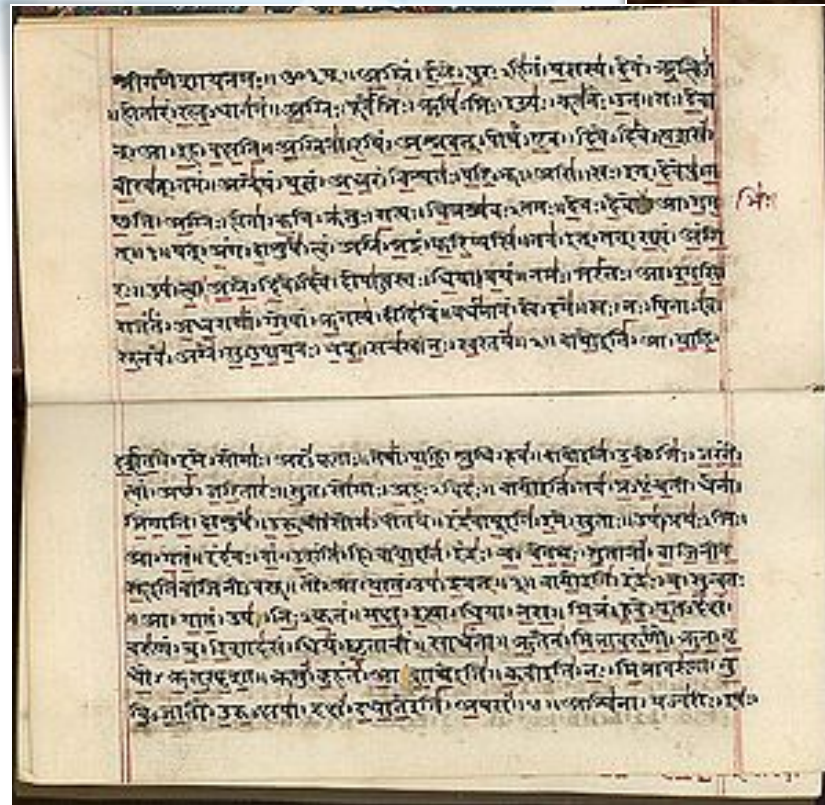 श्रीगणेशायनमः॥ॐ३म्॥अग्निं।ईळे।पुरःऽहितं।यज्ञस्य।देवं।ऋत्विजं
॥होतारं।रत्नऽधातमं॥अग्निः।पूर्वेभिः।ऋषिऽभिः।ईड्यः।नूतनैः।उत॥सः।देवा
न्।आ।इह।वक्षति॥अग्निना।रयिं।अश्नवत्।पोषं।एव।दिवेऽदिवे॥यशसं
वीरवत्ऽतमं॥अग्ने।यं।यज्ञं।अध्वरं।विश्वतः।परिऽभूः।असि॥सः।इत्।देवेषु।ग
च्छति॥अग्निः।होता।कविऽक्रतुः।सत्यः।चित्रश्रवःऽतमः॥देवः।देवे।आ।गम
भिः
त्॥१॥यत्।अंग।दाशुषे।त्वं।अग्ने।भद्रं।करिष्यसि॥तव।इत्।तत्।सत्यं।अंगि
रः॥उप।त्वा।अग्ने।दिवेऽदिवे।दोषाऽवस्तः।धिया।वयं॥नमः।भरंतः।आ।इमसि
राजंतं।अध्वराणां।गोपां।ऋतस्य।दीदिविं॥वर्धमानं।स्वे।दमे॥सः।नः।पिताऽइव
सूनवे।अग्ने।सुऽउपायनः।भव॥सचस्व।नः।स्वस्तये॥२॥वायोइति।आ।याहि
दर्शत।इमे।सोमाः।अरंऽकृताः॥तेषां।पाहि।श्रुधि।हवं॥वायोइति।उक्थेभिः।जरंते
त्वां।अच्छ।जरितारः॥सुतऽसोमाः।अहःऽविदः॥वायोइति।तव।प्रऽपृंचती।धेना
जिगाति।दाशुषे॥उरूची।सोमऽपीतये॥इंद्रवायूइति।इमे।सुताः॥उप।प्रयःऽभिः
आ।गतं॥इंदवः।वां।उशंति।हि॥वायोइति।इंद्रः।च।चेतथः।सुतानां।वाजिनीव
सूइतिवाजिनीऽवसू॥तौ।आ।यातं।उप।द्रवत्॥३॥वायोइति।इंद्रः।च।सुन्वतः
॥आ।यातं।उप।निःऽकृतं॥मक्षु।इत्था।धिया।नरा॥मित्रं।हुवे।पूतऽदक्षं
वरुणं।च।रिशादसं॥धियं।घृताचीं।साधंता॥ऋतेन।मित्रावरुणौ।ऋतऽवृ
धौ।ऋतऽस्पृशा॥क्रतुं।बृहंतं।आशाथेइति॥कवीइति।नः।मित्रावरुणा।तु
विऽजातौ।उरुऽक्षया॥दक्षं।दधातेइति।अपसं॥४॥अश्विना।यज्वरीः।इषः